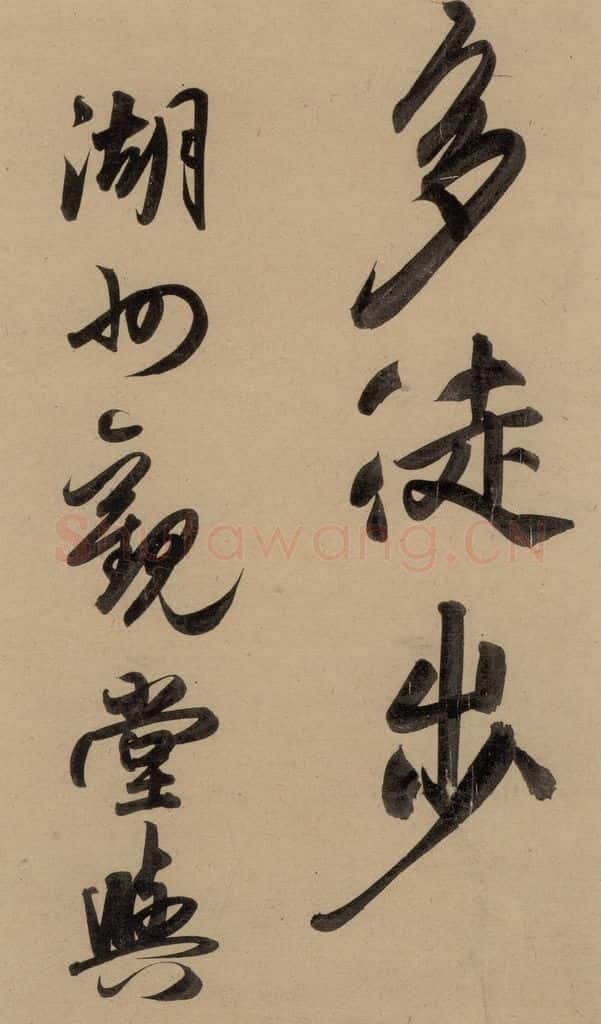 多徒步
湖州觀堂與
Shufawang.CN